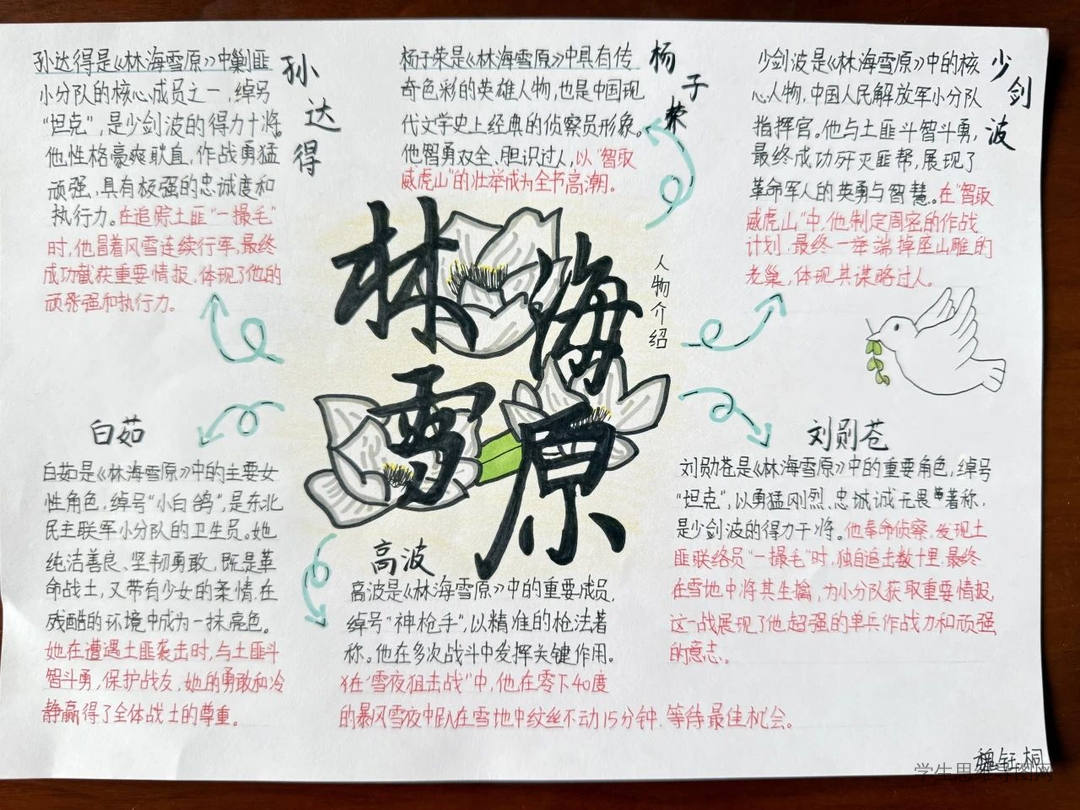 孙达得
孙达得是《林海雪原》中剿匪
小分队的核心成员之一,绰号
“坦克”,是少剑波的得力十将。
他性格豪爽耿直,作战勇猛
顽强,具有极强的忠诚度和
执行力。在追踪土匪“一撮毛”
时,他冒着风雪连续行军,最终
成功截获重要情报,体现了他的
顽强和执行力。
杨子荣
杨子荣是《林海雪原》中具有传
奇色彩的英雄人物,也是中国现
代文学史上经典的侦察员形象。
他智勇双全、胆识过人,以“智取
威虎山”的壮举成为全书高潮。
少剑波
少剑波是《林海雪原》中的核
心人物,中国人民解放军小分队
指挥官。他与土匪斗智斗勇,
最终成功歼灭匪帮,展现了
革命军人的英勇与智慧。在“智取
威虎山”中,他制定周密的作战
计划,最终一举端掉座山雕的
老巢,体现其谋略过人。
林海
雪原
人物介绍
白茹
白茹是《林海雪原》中的主要女
性角色,绰号“小白鸽”,是东北
民主联军小分队的卫生员。她
纯洁善良、坚韧勇敢,既是革
命战士,又带有少女的柔情,在
残酷的环境中成为一抹亮色。
她在遭遇土匪袭击时,与土匪斗
智斗勇,保护战友,她的勇敢和冷
静赢得了全体战士的尊重。
高波
高波是《林海雪原》中的重要成员,
绰号“神枪手”,以精准的枪法著
称。他在多次战斗中发挥关键作用。
在“雪夜狙击战”中,他在零下40度
的暴风雪夜中趴在雪地中纹丝不动15分钟,等待最佳机会。
刘勋苍
刘勋苍是《林海雪原》中的重要角色,绰号
“坦克”,以勇猛刚烈、忠诚诚无畏著称,
是少剑波的得力干将。他奉命侦察,发现土
匪联络员“一撮毛”时,独自追击数十里,最终
在雪地中将其生擒,为小分队获取重要情报,
这一战展现了他超强的单兵作战力和顽强
的意志。
魏钰桐